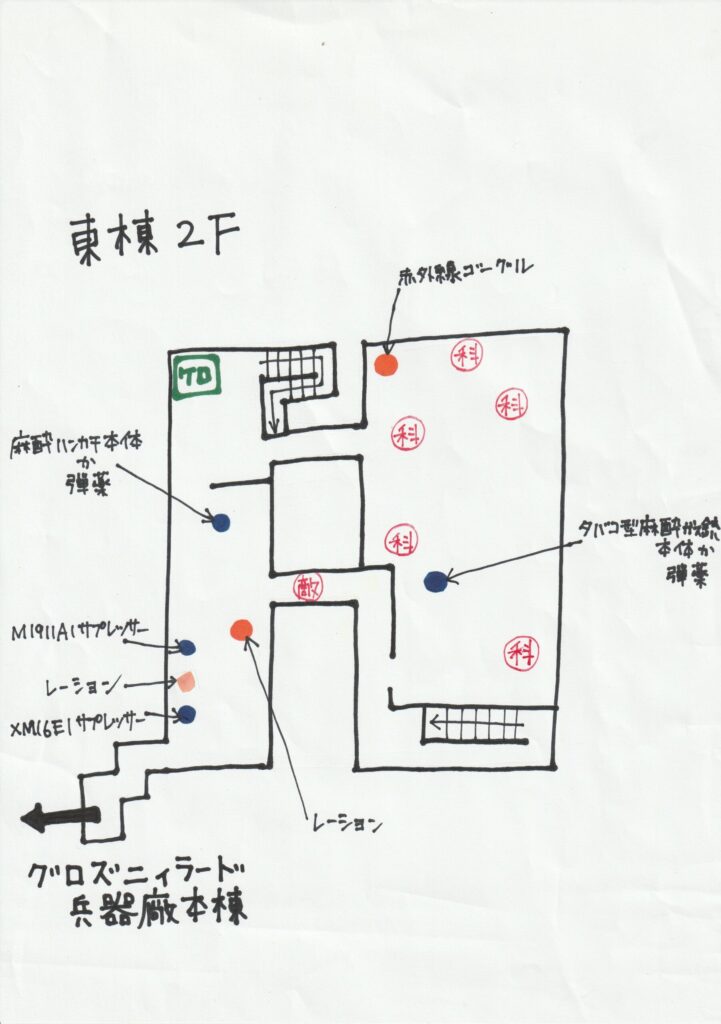 東棟 2F
赤外線ゴーグル
科
科
ケロ
科
麻酔ハンカチ本体
か
弾薬
科
タバコ型麻酔ガス銃
本体か
弾薬
敵
M1911A1サプレッサー
科
レーション
XM16E1サプレッサー
レーション
グロズニィグラード
兵器廠本棟